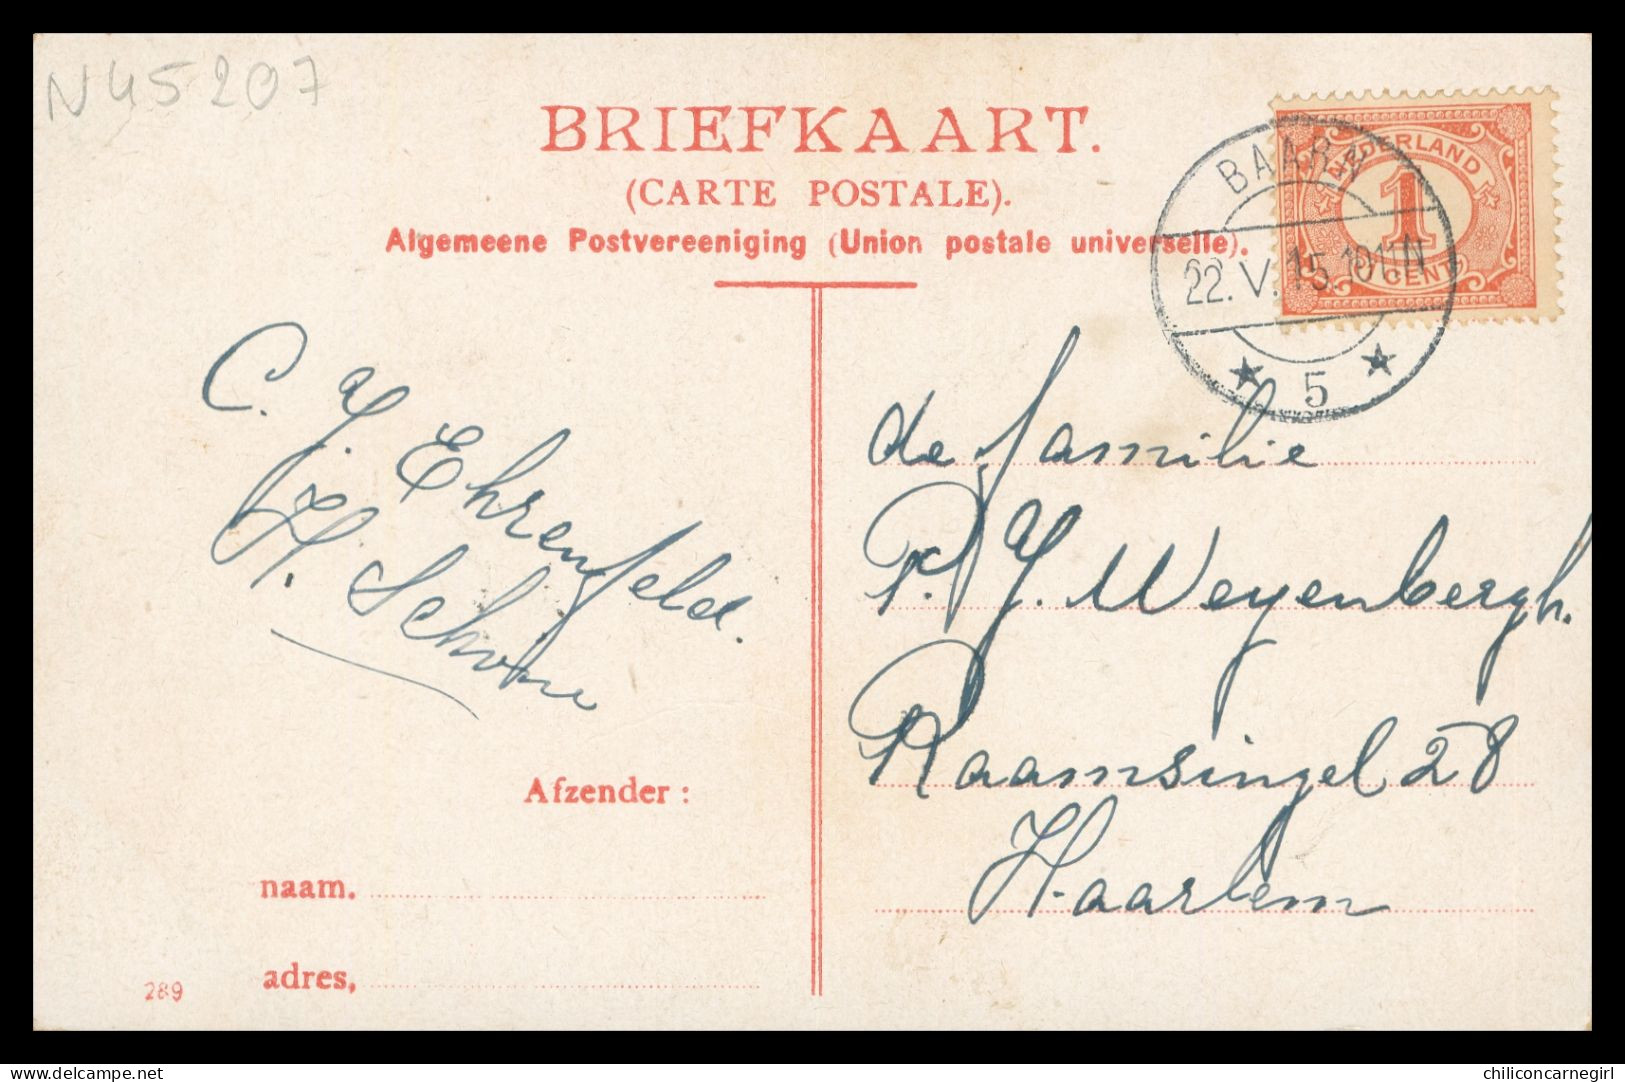 N45207
BRIEFKAART.
(CARTE POSTALE).
Algemeene Postvereeniging (Union postale universelle).
NEDERLAND
1
CENT
BAARN
22.V.15. 10-11N
5
C. J. Ehrenfeld.
H. Schone
de familie
P. J. Weyenbergh.
Raamsingel 28
Haarlem
Afzender:
naam.
adres,
289
delcampe.net
chiliconcarnegirl